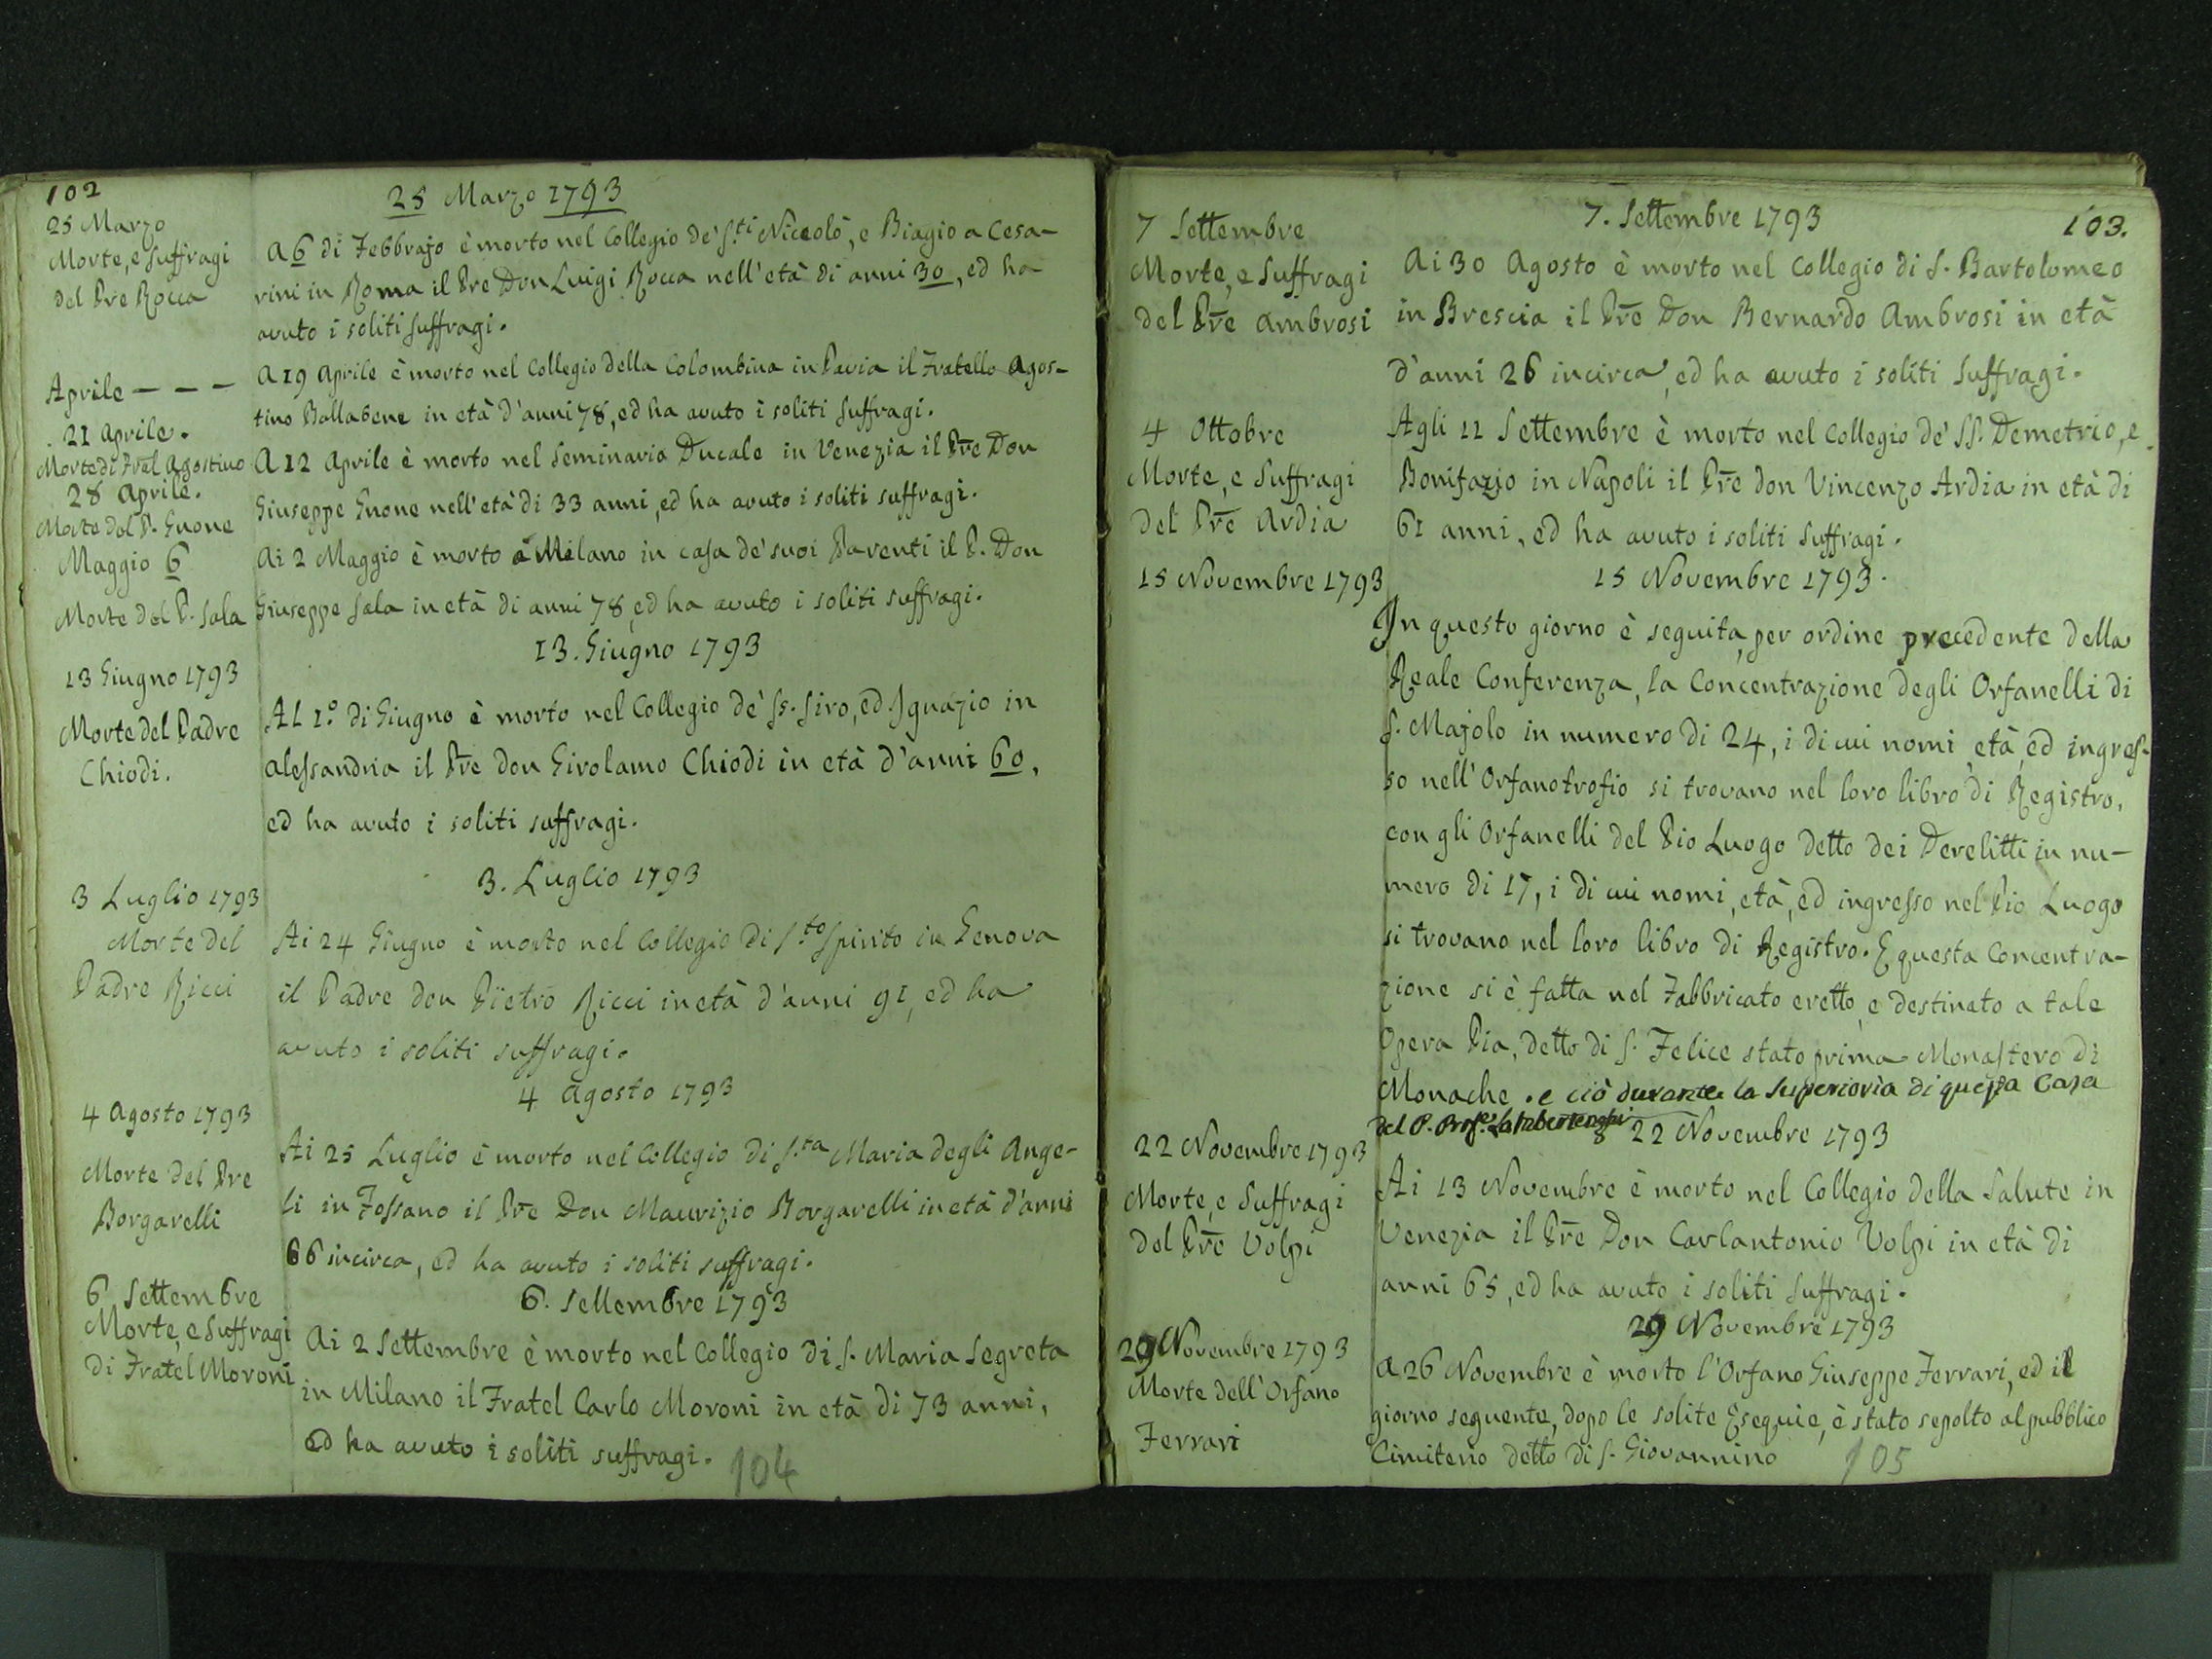 102
25 Marzo 1793
25 Marzo
Morte, e Suffragi
del Pre Rocca
A 6 di Febbrajo è morto nel Collegio de' S.ti Niccolò, e Biagio a Cesa-
rini in Roma il Pre Don Luigi Rocca nell'età di anni 30, ed ha
avuto i soliti suffragi.
Aprile - - -
21 Aprile.
Morte di Fratel Agostino
A 19 Aprile è morto nel Collegio della Colombina in Pavia il Fratello Agos-
tino Ballabene in età d'anni 78, ed ha avuto i soliti suffragi.
28 Aprile.
Morte del P. Gnone
A 12 Aprile è morto nel Seminario Ducale in Venezia il Pre Don
Giuseppe Gnone nell'età di 33 anni, ed ha avuto i soliti suffragi.
Maggio 6
Morte del P. Sala
Ai 2 Maggio è morto a Milano in casa de' suoi Parenti il P. Don
Giuseppe Sala in età di anni 78, ed ha avuto i soliti suffragi.
13. Giugno 1793
13 Giugno 1793
Morte del Padre
Chiodi.
Al 1.o di Giugno è morto nel Collegio de' SS. Siro, ed Ignazio in
Alessandria il Pre Don Girolamo Chiodi in età d'anni 60,
ed ha avuto i soliti suffragi.
3. Luglio 1793
3 Luglio 1793
Morte del
Padre Ricci
Ai 24 Giugno è morto nel Collegio di S.to Spirito in Genova
il Padre Don Pietro Ricci in età d'anni 91, ed ha
avuto i soliti suffragi.
4 Agosto 1793
4 Agosto 1793
Morte del Pre
Borgarelli
Ai 25 Luglio è morto nel Collegio di S.ta Maria degli Ange-
li in Fossano il Pre Don Maurizio Borgarelli in età d'anni
66 incirca, ed ha avuto i soliti suffragi.
6. Settembre 1793
6 Settembre
Morte, e Suffragi
di Fratel Moroni
Ai 2 Settembre è morto nel Collegio di S. Maria Segreta
in Milano il Fratel Carlo Moroni in età di 73 anni,
ed ha avuto i soliti suffragi.
104
103.
7. Settembre 1793
7 Settembre
Morte, e Suffragi
del Pre Ambrosi
Ai 30 Agosto è morto nel Collegio di S. Bartolomeo
in Brescia il Pre Don Bernardo Ambrosi in età
d'anni 26 incirca, ed ha avuto i soliti suffragi.
4 Ottobre
Morte, e Suffragi
del Pre Ardia
Agli 11 Settembre è morto nel Collegio de' SS. Demetrio, e
Bonifazio in Napoli il Pre don Vincenzo Ardia in età di
61 anni, ed ha avuto i soliti suffragi.
15 Novembre 1793
15 Novembre 1793.
In questo giorno è seguita, per ordine precedente della
Reale Conferenza, la Concentrazione degli Orfanelli di
S. Majolo in numero di 24, i di cui nomi, età, ed ingres-
so nell'Orfanotrofio si trovano nel loro libro di Registro,
con gli Orfanelli del Pio Luogo detto dei Derelitti in nu-
mero di 17, i di cui nomi, età, ed ingresso nel Pio Luogo
si trovano nel loro libro di Registro. E questa Concentra-
zione si è fatta nel Fabbricato eretto, e destinato a tale
Opera Pia, detto di S. Felice stato prima Monastero di
Monache . e ciò durante la Superioria di questa Casa
del P. Prof.e Lambertenghi
22 Novembre 1793
22 Novembre 1793
Morte, e Suffragi
del Pre Volpi
Ai 13 Novembre è morto nel Collegio della Salute in
Venezia il Pre Don Carlantonio Volpi in età di
anni 65, ed ha avuto i soliti suffragi.
29 Novembre 1793
29 Novembre 1793
Morte dell'Orfano
Ferrari
A 26 Novembre è morto l'Orfano Giuseppe Ferrari, ed il
giorno seguente, dopo le solite Esequie, è stato sepolto al pubblico
Cimiterio detto di S. Giovannino
105